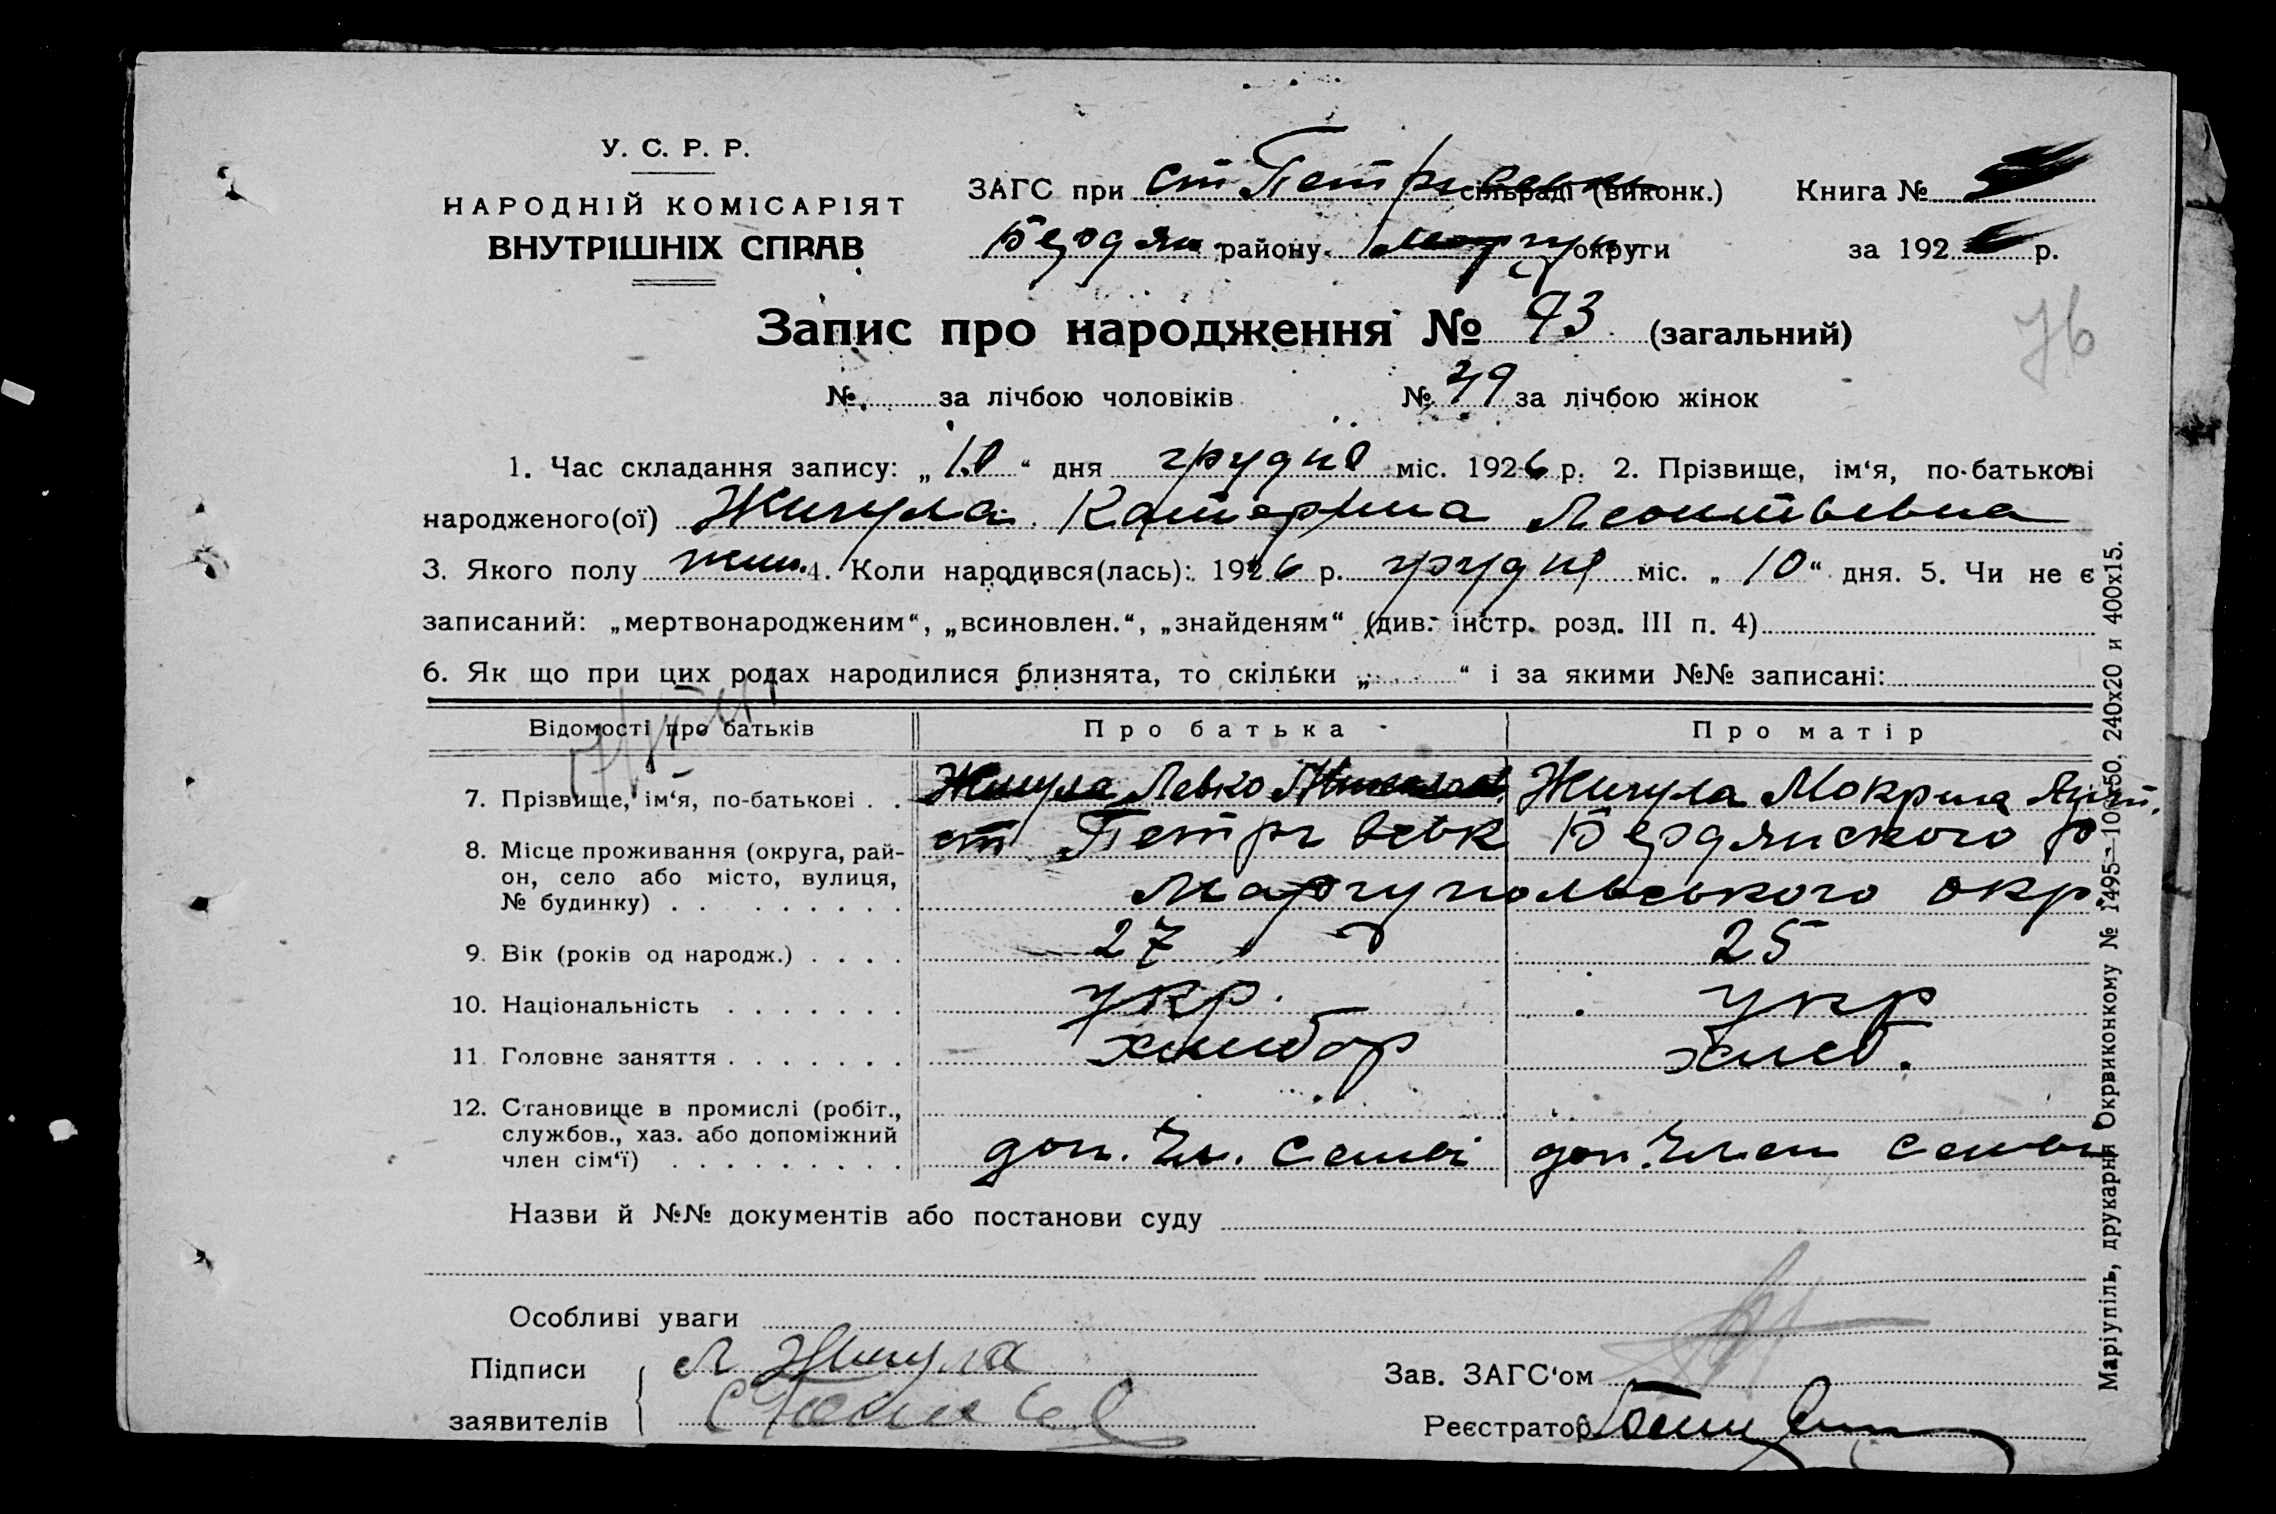 У. С. Р. Р.
НАРОДНІЙ КОМІСАРІЯТ
ВНУТРІШНІХ СПРАВ
ЗАГС при ст Петрівськ сільраді (виконк.)
Бердян району Маріуп округи
Книга №
за 192 р.
Запис про народження № 93 (загальний)
76
№ за лічбою чоловіків № 49 за лічбою жінок
1. Час складання запису: „10“ дня грудня міс. 1926 р. 2. Прізвище, ім‘я, по-батькові
народженого(ої) Жигула Катерина Леонтьевна
3. Якого полу жин. 4. Коли народився(лась): 1926 р. грудня міс. „10“ дня. 5. Чи не є
записаний: „мертвонародженим“, „всиновлен.“, „знайденям“ (див. інстр. розд. III п. 4)
6. Як що при цих родах народилися близнята, то скільки „ “ і за якими №№ записані:
Відомості про батьків Про батька Про матір
7. Прізвище, ім‘я, по-батькові . . Жигула Левко Жигула Мокрина
8. Місце проживання (округа, рай- ст Петрівськ Бердянского р
он, село або місто, вулиця,
№ будинку) . . . . . . . . Маріупольського окр.
9. Вік (років од народж.) . . . . 27 25
10. Національність . . . . . . . укр. укр
11. Головне заняття . . . . . . . хлибор хлеб.
12. Становище в промислі (робіт.,
службов., хаз. або допоміжний
член сім‘ї) . . . . . . . . . доп. чл. семьі доп. член семьі
Назви й №№ документів або постанови суду
Особливі уваги
Підписи Л Жигула
заявителів
Зав. ЗАГС‘ом
Реєстратор
Маріупіль, друкарня Окрвиконкому № 1495—100х50, 240х20 и 400х15.